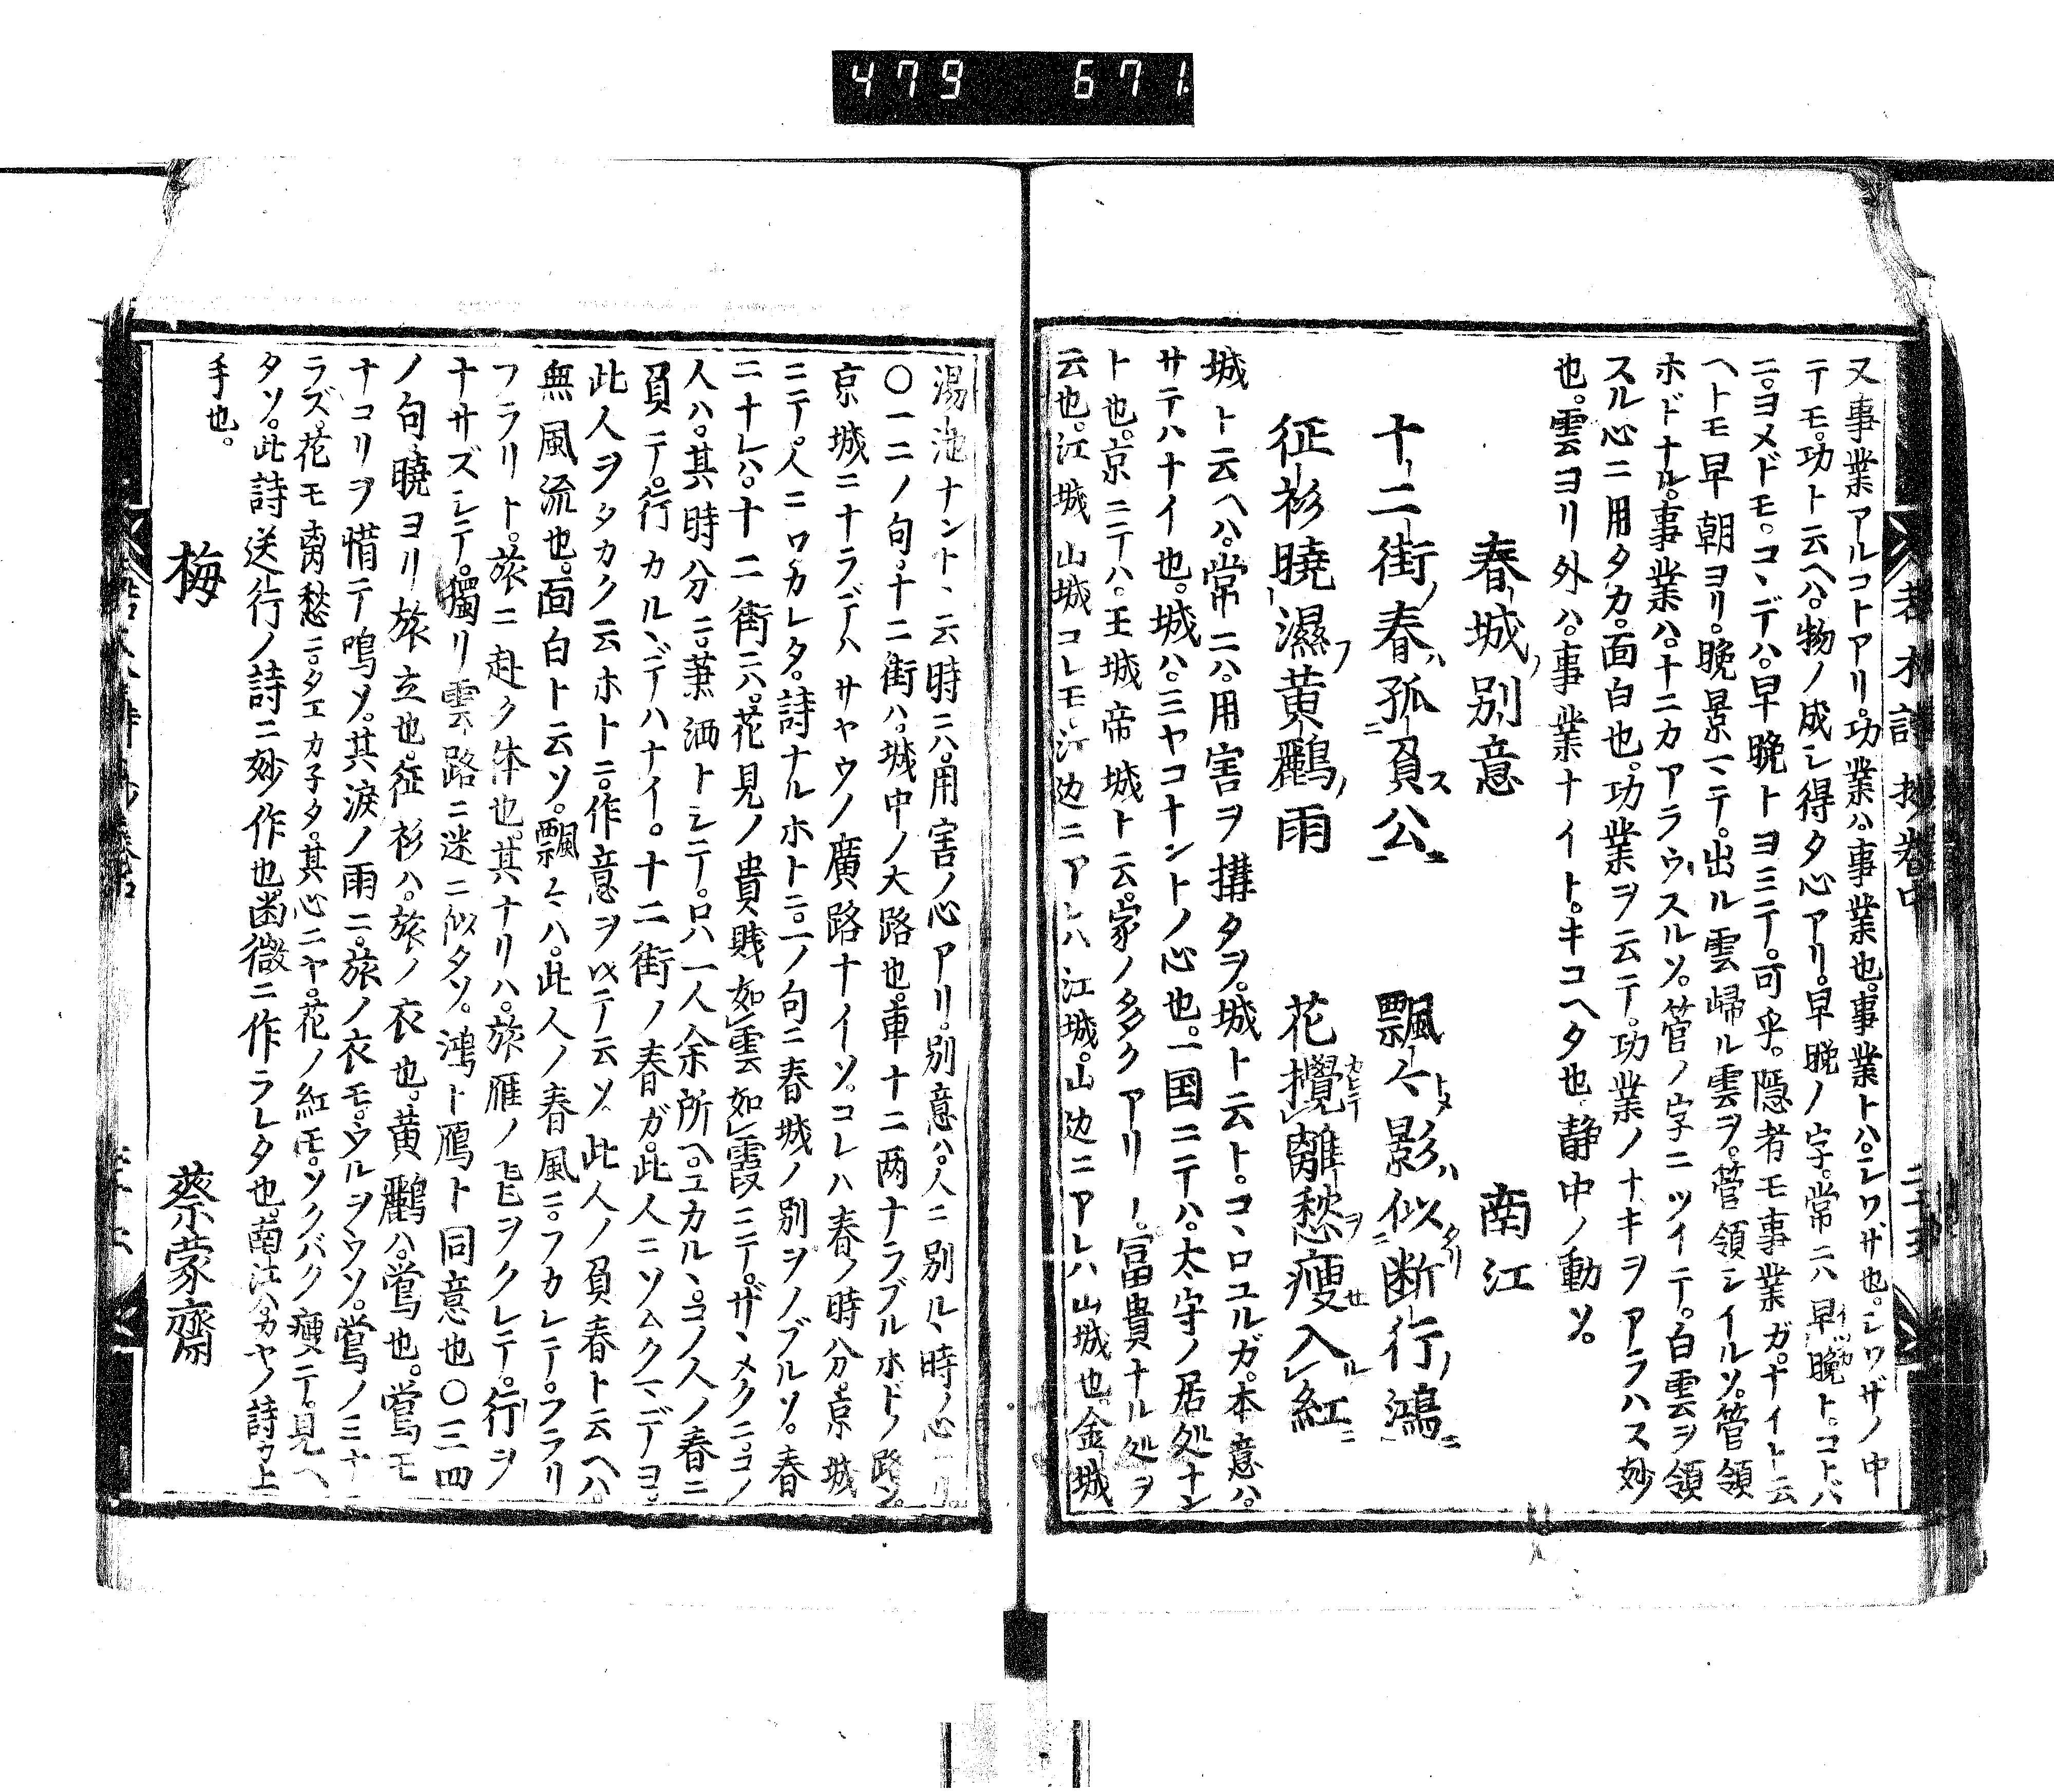 479 671
又事業アルコトアリ。功業ハ事業也。事業トハ。シワザ也。シワザノ中
テモ。功ト云ヘハ。物ノ成シ得タ心アリ。早晩ノ字。常ニハ早晩ト。コトバ
ニ。ヨメドモ。コヽデハ。早晩トヨミテ。可乎。隠者モ事業ガ。ナイト云
ヘトモ早朝ヨリ。晩景マテ。出ル雲帰ル雲ヲ。管領シイルソ。管領
ホドナル。事業ハ。ナニカアラウスルソ。管ノ字ニツイテ。白雲ヲ領
スル心ニ用タカ。面白也。功業ヲ云テ。功業ノナキヲアラハス妙
也。雲ヨリ外ハ。事業ナイト。キコヘタ也。静中ノ動ソ。
春城ノ別意 南江
十二街ノ春ハ孤ニ負ス公ニ 飄々トメ影ハ似タリ断行ノ鴻ニ
征衫暁濕フ黄鸝ノ雨 花攪離愁ヲ痩入ル紅ニ
城ト云ヘハ。常ニハ。用害ヲ搆タヲ。城ト云ト。コヽロユルガ。本意ハ。
サテハナイ也。城ハ。ミヤコナントノ心也。一国ニテハ。太守ノ居処ナン
ト也。京ニテハ。王城帝城ト云。家ノ多クアリ。富貴ナル処ヲ
云也。江城山城コレモ。江辺ニアレハ江城。山辺ニアレハ山城也金城
湯池ナントヽ云時ニハ。用害ノ心アリ。別意ハ。人ニ別ルヽ時ノ心
〇一二ノ句。十二街ハ。城中ノ大路也。車十二両ナラブルホドノ路ソ。
京城ニナラデハサヤウノ廣路ナイソ。コレハ春ノ時分。京城
ニテ。人ニワカレタ。詩ナルホトニ。一ノ句ニ春城ノ別ヲノブルソ。春
ニナレハ。十二街ニハ。花見ノ貴賎如雲如霞ニテ。ザヽメクニ。コノ
人ハ。其時分ニ。蕭洒トシテ。只一人余所ヘ。ユカルヽ。コノ人ノ春ニ
負テ。行カルヽデハナイ。十二街ノ春ガ。此人ニソムクマデヨ。
此人ヲタカク云ホトニ。作意ヲ以テ云ソ。此人ノ負春ト云ヘハ。
無風流也。面白ト云ソ。飄々ハ。此人ノ春風ニ。フカレテ。フラリ
フラリト。旅ニ赴ク体也。其ナリハ。旅雁ノ飛ヲクレテ。行ヲ
ナサズシテ。獨リ雲路ニ迷ニ似タソ。鴻ト鴈ト同意也〇三四
ノ句暁ヨリ旅立也。征衫ハ。旅ノ衣也。黄鸝ハ。鴬也。鴬モ
ナコリヲ惜テ鳴ソ。其涙ノ雨ニ。旅ノ衣モ。ウルヲウソ。鴬ノミナ
ラズ。花モ離愁ニ。タエカ子タ。其心ニヤ。花ノ紅モ。ソクバク痩テ。見ヘ
タソ。此詩送行ノ詩ニ妙作也幽微ニ作ラレタ也。南江ハ。カヤノ詩カ上
手也。
梅 蔡蒙齋